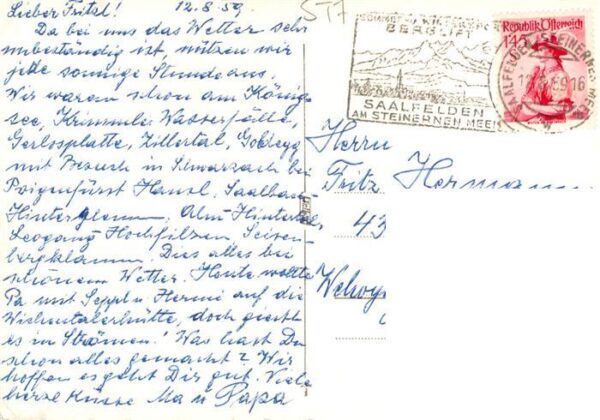 Lieber Fritzl! 12.8.59
Da bei uns das Wetter sehr
unbeständig ist, nützen wir
jede sonnige Stunde aus.
Wir waren schon am König-
see, Krimmler Wasserfälle,
Gerlosplatte, Zillertal, Goldegg
mit Besuch in Schwarzach bei
Hansl, Saalbach-
Hinterglemm, Alm-Hinterthal,
Leogang Hochfilzen, Seisen-
bergklamm. Dies alles bei
schönem Wetter. Heute wollte
Pa mit Seppl u Hermi auf die
doch giesst
es in Strömen! Was hast Du
schon alles gemacht? Wir
hoffen es geht Dir gut. Viele
herzl Küsse Ma u Papa
557
SOMMER WINTERSPORT
BERGLIFT
SAALFELDEN
AM STEINERNEN MEER
Republik Österreich
1.45
SAALFELDEN STEINERNES MEER
Herrn
Fritz Hermann
43